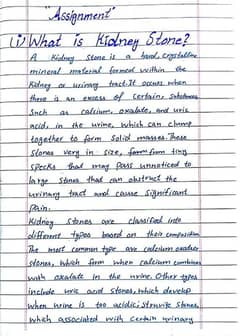 "Assignment"
(i) What is Kidney Stone?
A Kidney Stone is a hard, crystalline
mineral material formed within the
kidney or urinary tract. It occurs when
there is an excess of certain, substances
Such as calcium, oxalate, and uric
acid, in the urine, which can clump
together to form Solid masses. These
Stones vary in size, form from tiny
specks that may pass unnoticed to
large Stones that can obstruct the
urinary tract and cause significant
pain.
Kidney Stones are classified into
different types based on their composition
The most common type are calcium oxalate
stones, which form when calcium combines
with oxalate in the urine. Other types
include uric acid Stones, which develop
when urine is too acidic; Struvite Stones,
which associated with certain urinary